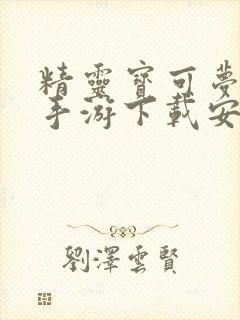 精靈寶可夢
手游下載安
劉澤雲賢